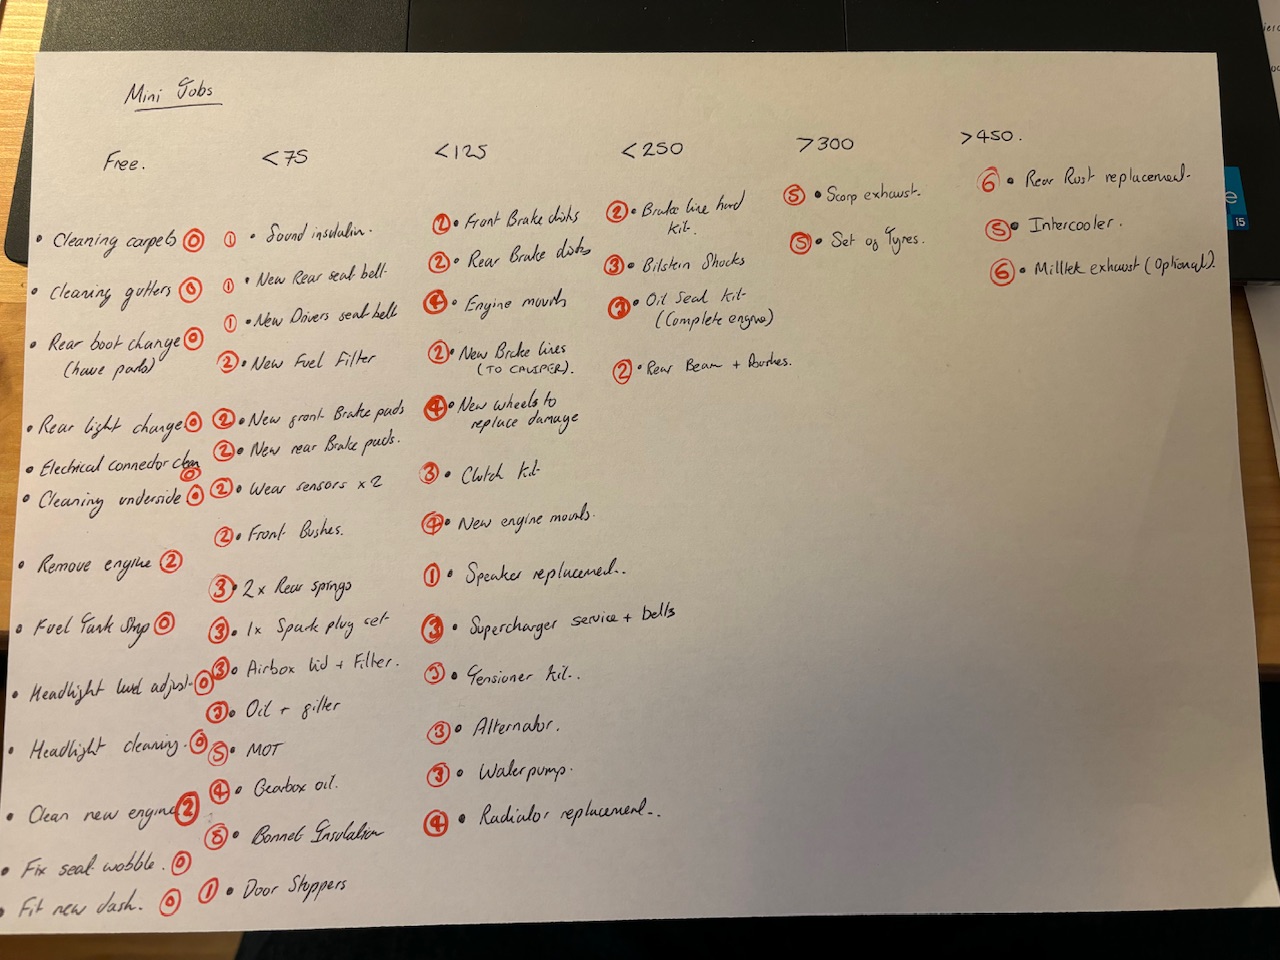 Mini Jobs
Free.
• Cleaning carpets 0
• Cleaning gutters 0
• Rear boot change 0
(have parts)
• Rear light change 0
• Electrical connector clean
0
• Cleaning underside 0
• Remove engine 2
• Fuel Tank Strip 0
• Headlight level adjust 0
• Headlight cleaning. 0
• Clean new engine 2
• Fix seat wobble. 0
• Fit new dash. 0
<75
1 • Sound insulation.
1 • New Rear seat belt
1 • New Drivers seat belt
2 • New Fuel Filter
2 • New front Brake pads
2 • New rear Brake pads.
2 • Wear sensors x2
2 • Front Bushes.
3 • 2x Rear springs
3 • 1x Spark plug set
3 • Airbox lid + Filter.
3 • Oil + filter
5 • MOT
4 • Gearbox oil.
• Bonnet Insulation
1 • Door Stoppers
<125
2 • Front Brake disks
2 • Rear Brake disks
4 • Engine mounts
2 • New Brake lines
(TO CALIPER).
4 • New wheels to
replace damage
3 • Clutch kit
4 • New engine mounts.
1 • Speaker replacement.
3 • Supercharger service + belts
3 • Tensioner kit.
3 • Alternator.
3 • Waterpump.
4 • Radiator replacement.
<250
2 • Brake line hard
kit.
3 • Bilstein Shocks
• Oil Seal kit
(Complete engine)
2 • Rear Beam + Bushes.
>300
5 • Scorp exhaust.
5 • Set of Tyres.
>450.
6 • Rear Rust replacement
5 • Intercooler.
6 • Milltek exhaust (Optional).
i5